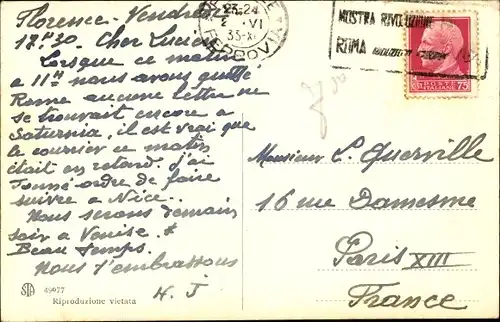 Florence - Vendredi
18h30. Cher Lucien
Lorsque ce matin
à 11h nous avons quitté
Rome aucune lettre ne
se trouvait encore à
Saturnia, il est vrai que
le courrier ce matin
était en retard. J'ai
donné ordre de faire
suivre à Nice..
Nous serons demain
soir à Venise.
Beau temps.
Nous t'embrassons
H. J
STA 49977
Riproduzione vietata
23-24
VI
35-XI
FERROVIA
MOSTRA RIVOLUZIONE
ROMA
POSTE ITALIANE 75
Monsieur L. Querville
16 rue Damesme
Paris XIII
France